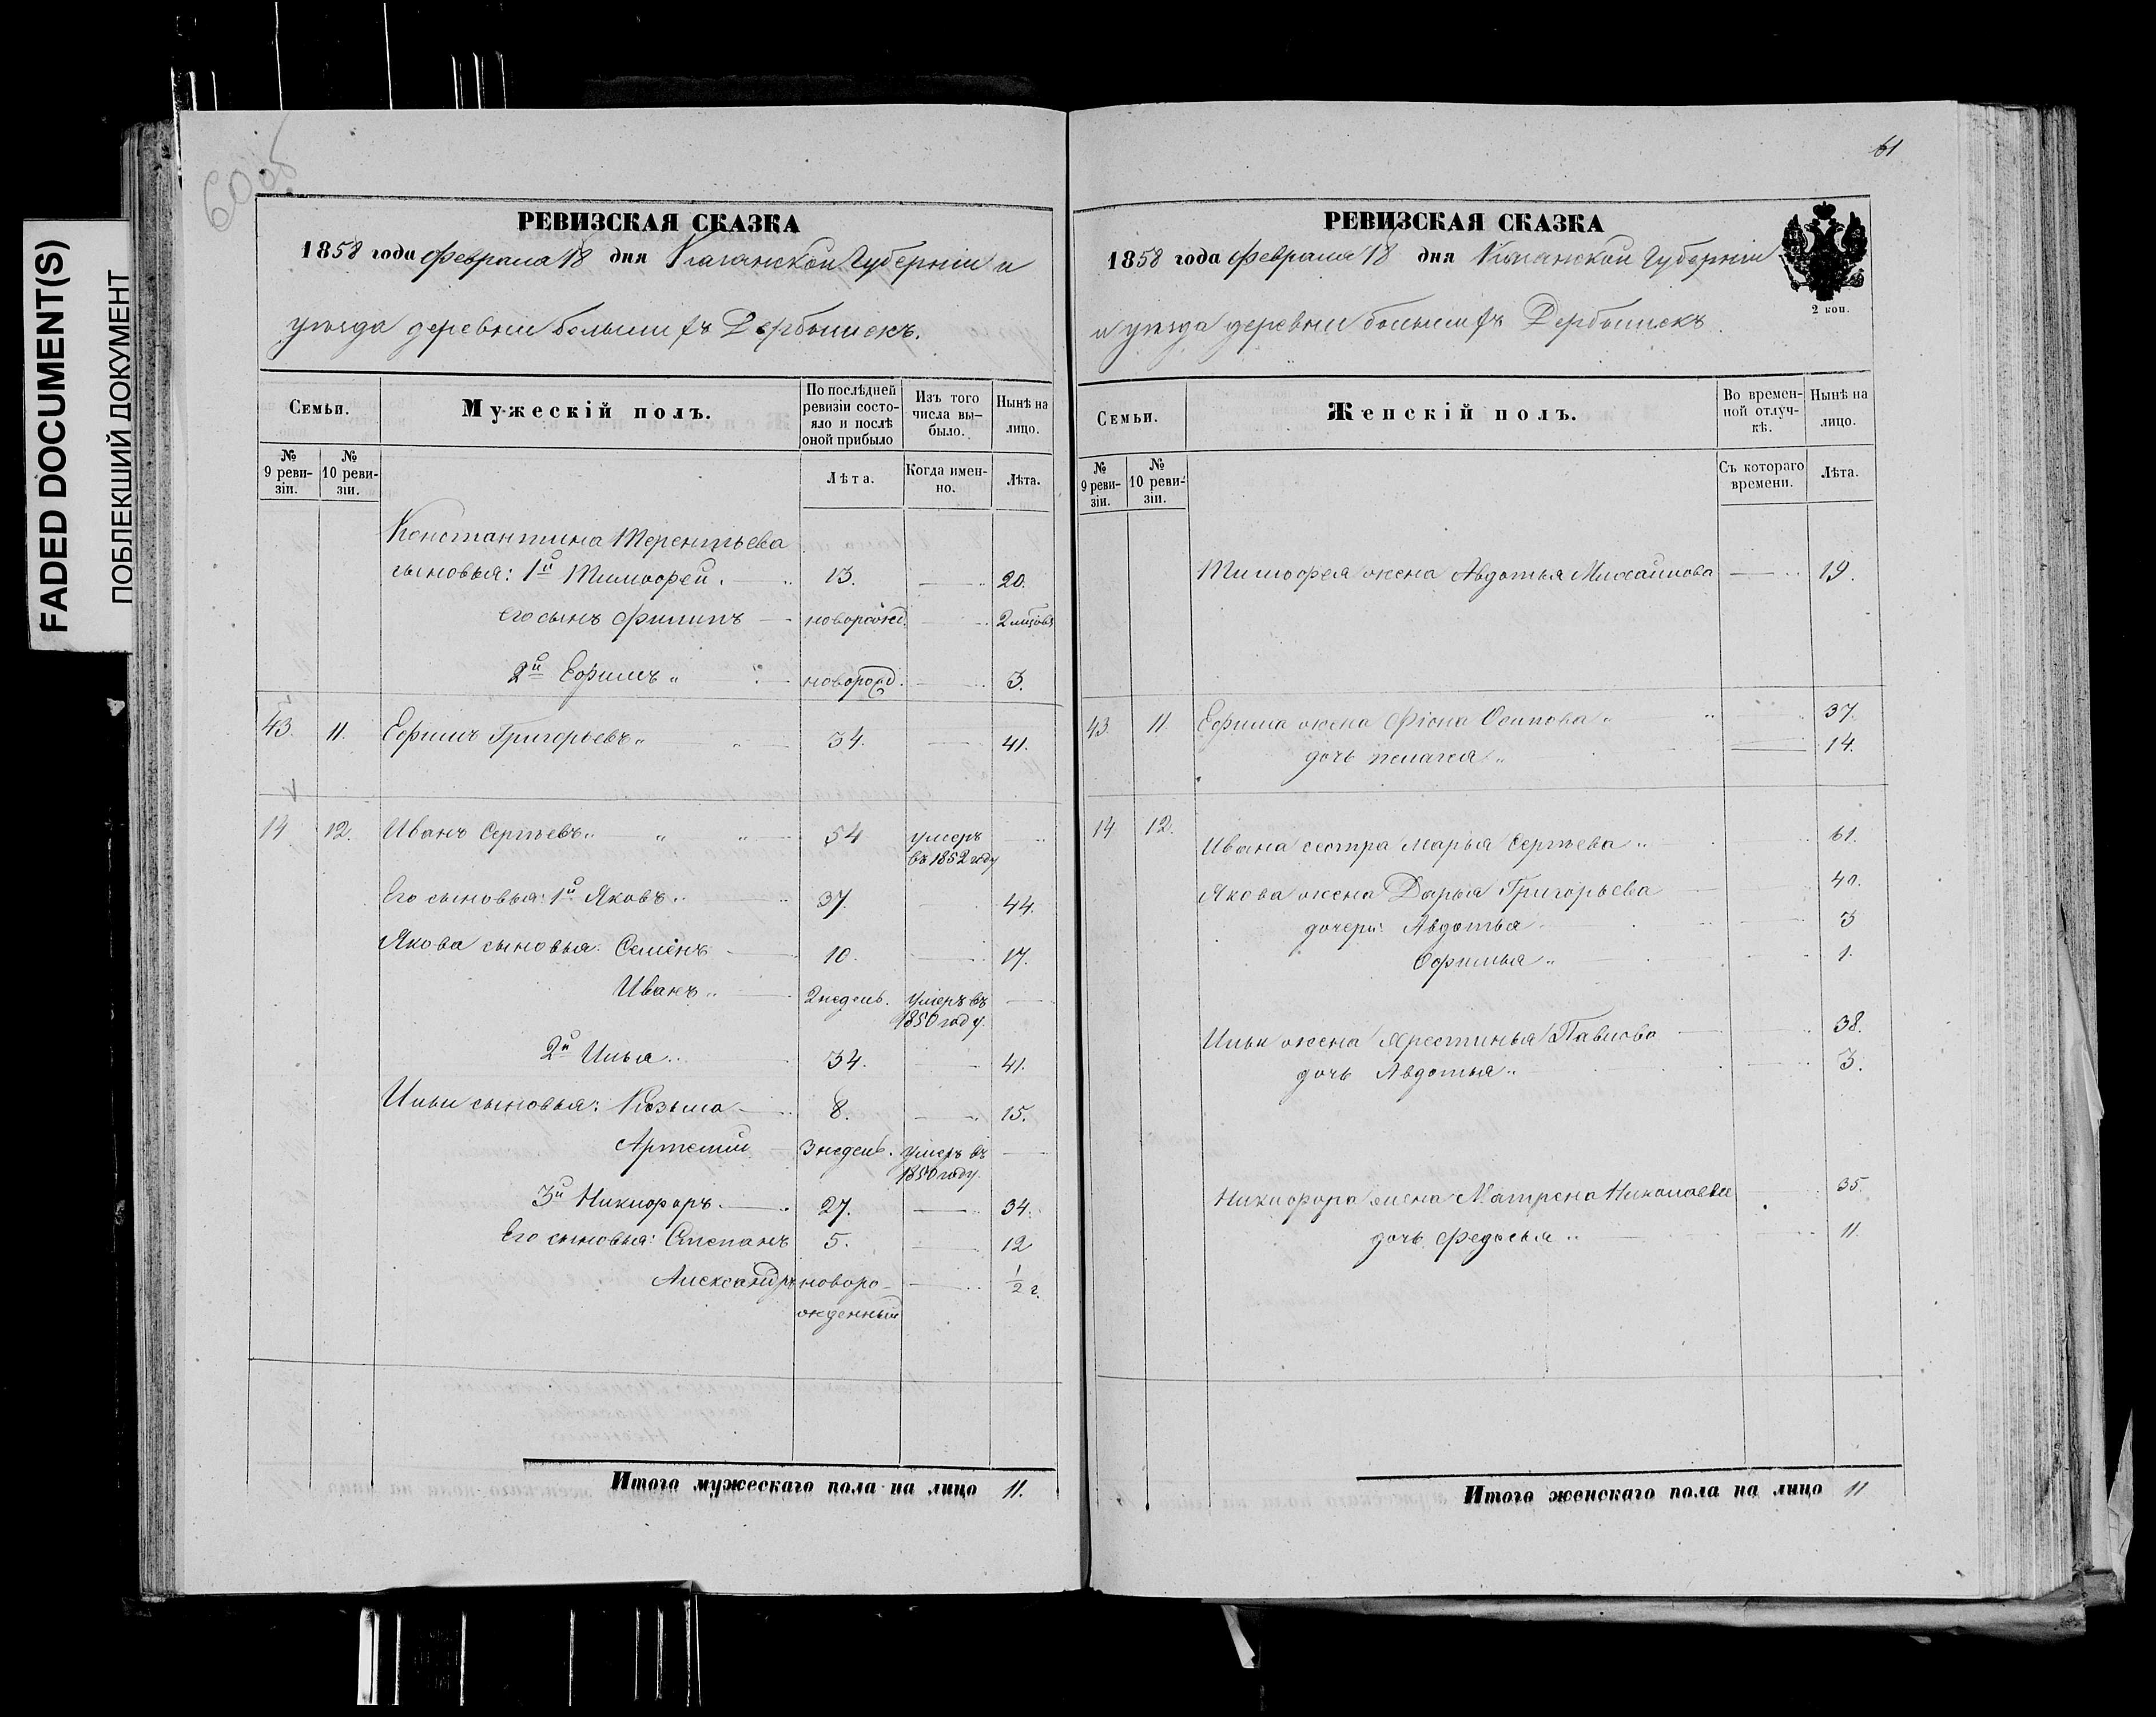 FADED DOCUMENT(S)
ПОБЛЕКШИЙ ДОКУМЕНТ
60об
РЕВИЗСКАЯ СКАЗКА
1858 года Февраля 18 дня Казанской Губерніи и
уѣзда деревни большихъ Дербышекъ.
Семьи.
Мужескій полъ.
По послѣдней ревизіи состояло и послѣ оной прибыло
Изъ того числа выбыло.
Нынѣ на лицо.
№ 9 ревизіи.
№ 10 ревизіи.
Лѣта.
Когда именно.
Лѣта.
Константина Терентьева
сыновья: 1й Тимофей. 13. 20.
его сынъ Филипъ новорожд. 2 мѣсов
2й Ефимъ новорожд. 3.
43. 11. Ефимъ Григорьевъ 34. 41.
14 12. Иванъ Сергѣевъ 54 умеръ
въ 1852 году
Его сыновья: 1й Яковъ 37. 44.
Якова сыновья: Семенъ 10. 17.
Иванъ 2 недель. умеръ въ
1850 году.
2й Илья 34. 41.
Ильи сыновья: Козьма 8. 15.
Артемий 3 недель. умеръ въ
1850 году.
3й Никифоръ 27. 34.
Его сыновья: Степанъ 5. 12
Александръ новоро-
жденный
1/2 г.
Итого мужескаго пола на лицо 11.
61
РЕВИЗСКАЯ СКАЗКА
1858 года Февраля 18 дня Казанской Губерніи
и уѣзда деревни большихъ Дербышекъ.
2 коп.
Семьи.
Женскій полъ.
Во временной отлучкѣ.
Нынѣ на лицо.
№ 9 ревизіи.
№ 10 ревизіи.
Съ котораго времени.
Лѣта.
Тимофея жена Авдотья Михайлова 19.
43. 11. Ефима жена Фіона Осипова 37.
дочь пелагея 14.
14 12. Ивана сестра Марья Сергѣева 61.
Якова жена Дарья Григорьева 40.
дочери: Авдотья 3
Офимья 1.
Ильи жена Хрестинья Павлова 38.
дочь Авдотья 3.
Никифора жена Матрена Николаева 35.
дочь Федосья 11.
Итого женскаго пола на лицо 11